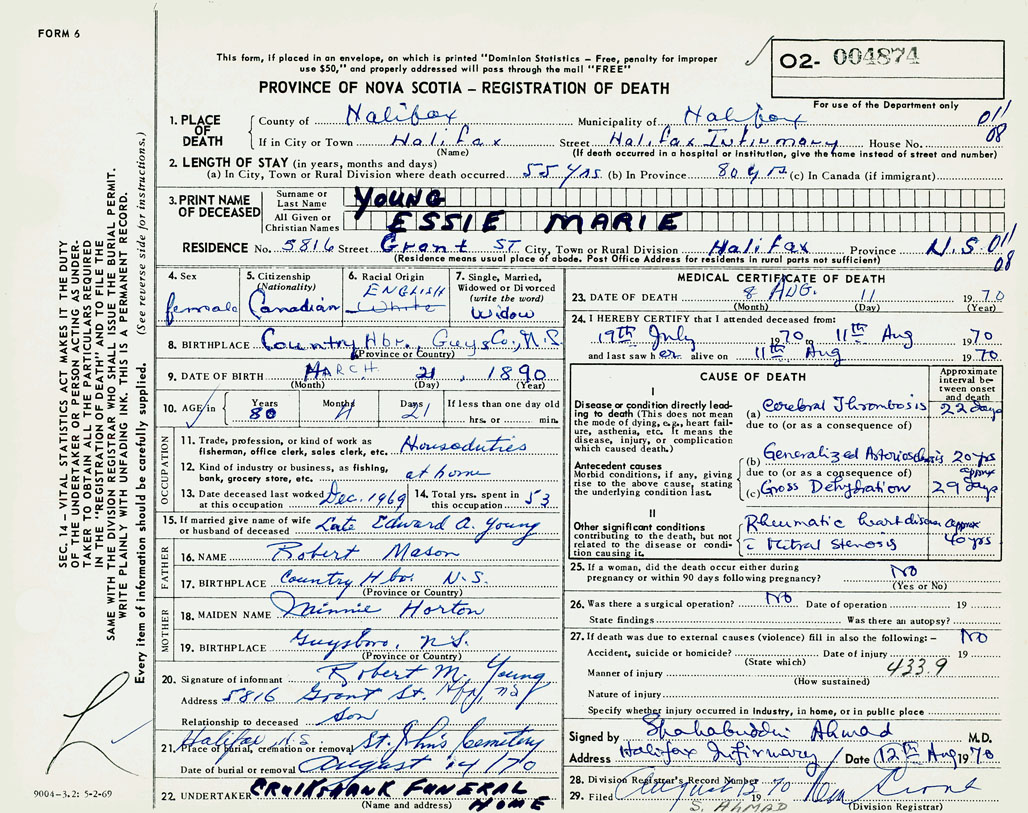 FORM 6
This form, if placed in an envelope, on which is printed "Dominion Statistics – Free, penalty for improper
use $50," and properly addressed will pass through the mail "FREE"
O2- 004874
PROVINCE OF NOVA SCOTIA – REGISTRATION OF DEATH
For use of the Department only
1. PLACE OF DEATH County of Halifax Municipality of Halifax 011
If in City or Town Halifax Street Halifax Infirmary House No. 08
(Name) (If death occurred in a hospital or institution, give the name instead of street and number)
2. LENGTH OF STAY (in years, months and days)
(a) In City, Town or Rural Division where death occurred 55 yrs (b) In Province 80 yrs (c) In Canada (if immigrant)
3. PRINT NAME OF DECEASED Surname or Last Name YOUNG
All Given or Christian Names ESSIE MARIE
RESIDENCE No. 5816 Street Grant ST City, Town or Rural Division Halifax Province N.S. 011
(Residence means usual place of abode. Post Office Address for residents in rural parts not sufficient) 08
4. Sex female
5. Citizenship (Nationality) Canadian
6. Racial Origin ENGLISH White
7. Single, Married, Widowed or Divorced (write the word) Widow
8. BIRTHPLACE Country Hbr., Guys Co., N.S.
(Province or Country)
9. DATE OF BIRTH MARCH 21, 1890
(Month) (Day) (Year)
10. AGE in Years 80 Months 4 Days 21 If less than one day old
hrs. or min.
OCCUPATION
11. Trade, profession, or kind of work as fisherman, office clerk, sales clerk, etc. Houseduties
12. Kind of industry or business, as fishing, bank, grocery store, etc. at home
13. Date deceased last worked at this occupation Dec. 1969 14. Total yrs. spent in this occupation 53
15. If married give name of wife or husband of deceased Late Edward A. Young
FATHER
16. NAME Robert Mason
17. BIRTHPLACE Country Hbr. N.S.
(Province or Country)
MOTHER
18. MAIDEN NAME Minnie Horton
19. BIRTHPLACE Guysboro, N.S.
(Province or Country)
20. Signature of informant Robert M. Young
Address 5816 Grant St. Hfx NS
Relationship to deceased son
Halifax, N.S.
21. Place of burial, cremation or removal St. John's Cemetery
Date of burial or removal August 14/70
22. UNDERTAKER CRUIKSHANK FUNERAL HOME
(Name and address)
MEDICAL CERTIFICATE OF DEATH
23. DATE OF DEATH 8 AUG. 11 1970
(Month) (Day) (Year)
24. I HEREBY CERTIFY that I attended deceased from:
19th July 1970 to 11th Aug 1970
and last saw her alive on 11th Aug 1970
CAUSE OF DEATH
Approximate interval between onset and death
I
Disease or condition directly leading to death (This does not mean the mode of dying, e.g., heart failure, asthenia, etc. It means the disease, injury, or complication which caused death.)
(a) Cerebral Thrombosis 22 days
due to (or as a consequence of)
Antecedent causes
Morbid conditions, if any, giving rise to the above cause, stating the underlying condition last.
(b) Generalized 20 yrs
due to (or as a consequence of) approx
(c) Gross Dehydration 29 days
II
Other significant conditions contributing to the death, but not related to the disease or condition causing it.
Rheumatic heart disease approx
c Mitral Stenosis 40 yrs
25. If a woman, did the death occur either during pregnancy or within 90 days following pregnancy? NO
(Yes or No)
26. Was there a surgical operation? NO Date of operation 19
State findings Was there an autopsy?
27. If death was due to external causes (violence) fill in also the following:– NO
Accident, suicide or homicide? Date of injury 19
(State which) 433.9
Manner of injury
(How sustained)
Nature of injury
Specify whether injury occurred in industry, in home, or in public place
Signed by Shahabuddin Ahmad M.D.
Address Halifax Infirmary Date 12th Aug 1970
28. Division Registrar's Record Number
29. Filed August 13 1970
S. AHMAD (Division Registrar)
SEC. 14 – VITAL STATISTICS ACT MAKES IT THE DUTY
OF THE UNDERTAKER OR PERSON ACTING AS UNDERTAKER
TO OBTAIN ALL THE PARTICULARS REQUIRED
IN THE "REGISTRATION OF DEATH" AND TO FILE THE
SAME WITH THE DIVISION REGISTRAR WHO SHALL ISSUE THE BURIAL PERMIT.
WRITE PLAINLY WITH UNFADING INK. THIS IS A PERMANENT RECORD.
Every item of information should be carefully supplied. (See reverse side for instructions.)
9004-3.2: 5-2-69